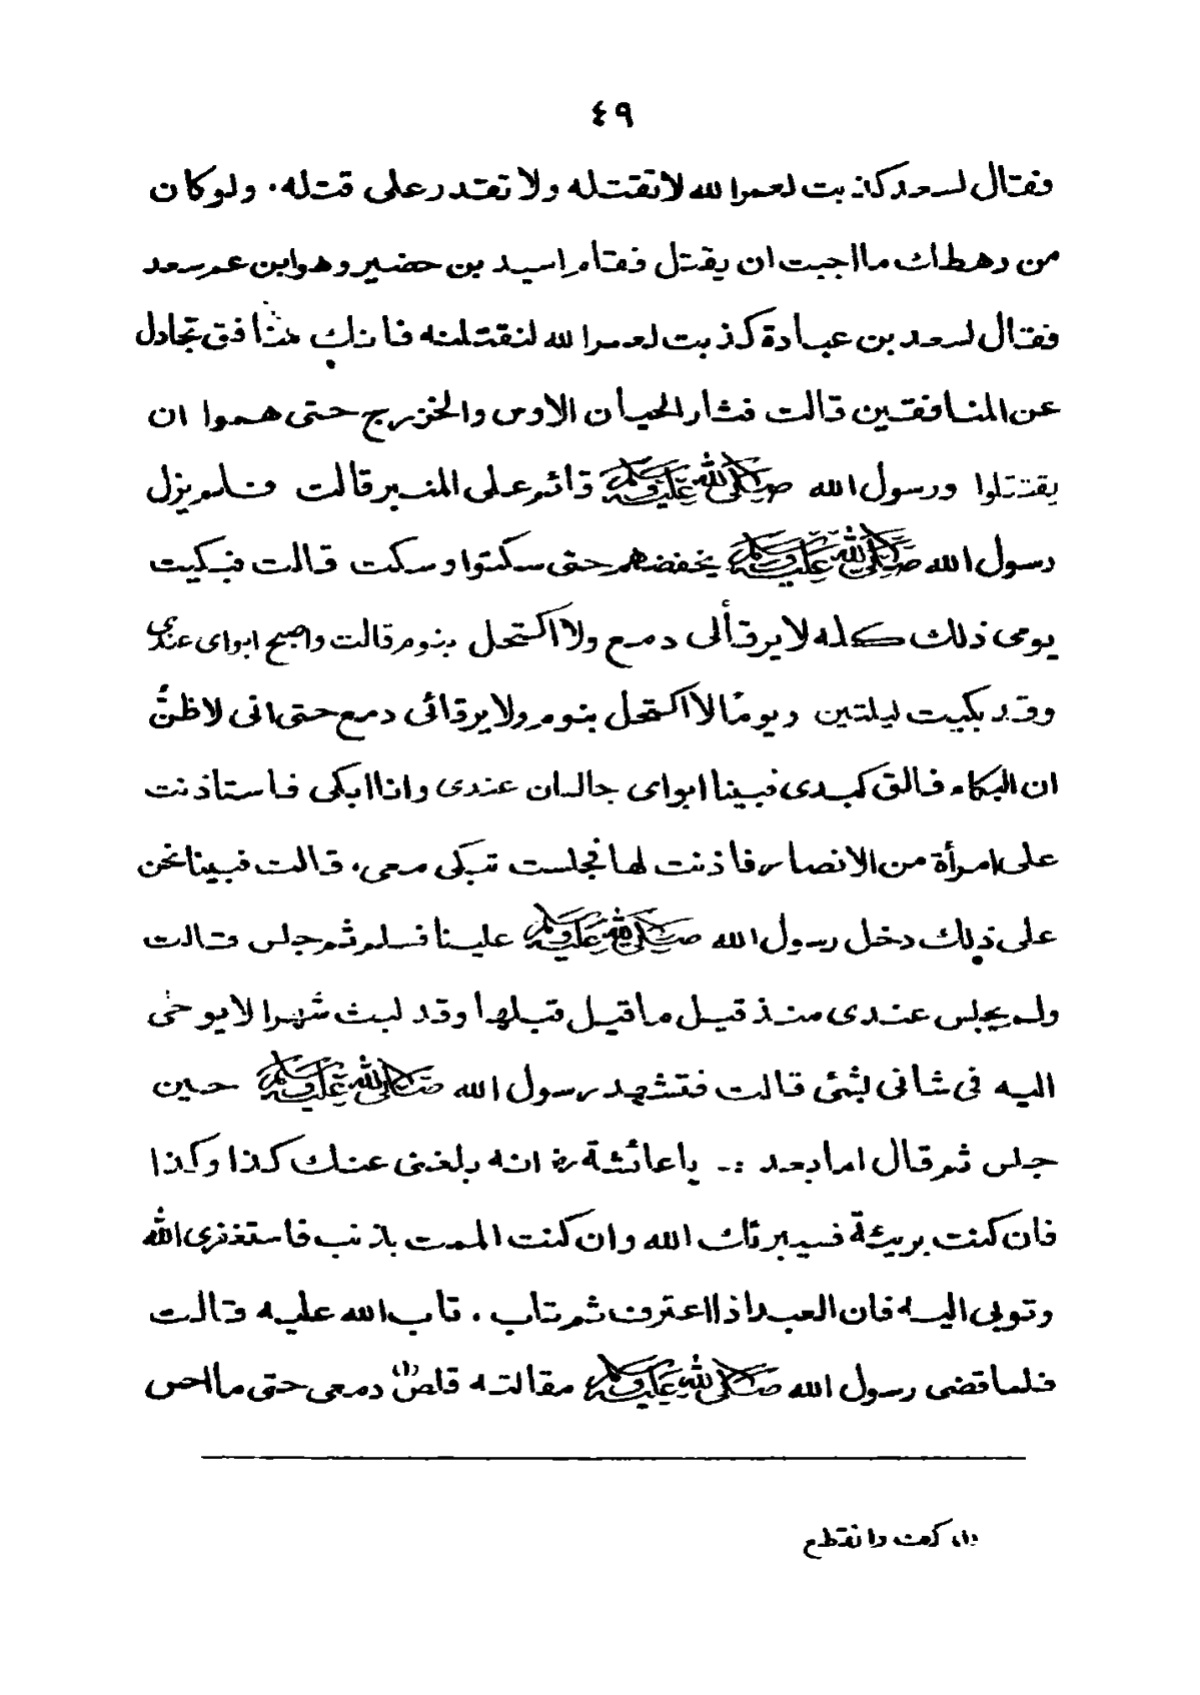 ٤٩
فقال لسعد كذبت لعمرا لله لا تقتله ولا تقدر على قتله. ولو كان
من رهطك ما اجبت ان يقتل فقام اسيد بن حضير وهو ابن عمر سعد
فقال لسعد بن عبادة كذبت لعمرا لله لنقتلنه فانك منافق تجادل
عن المنافقين قالت فثار الحيان الاوس والخزرج حتى هموا ان
يقتتلوا ورسول الله صلى الله عليه وسلم قائم على المنبر قالت فلم يزل
رسول الله صلى الله عليه وسلم يخفضهم حتى سكتوا وسكت قالت فبكيت
يومى ذلك كله لا يرقألى دمع ولا اكتحل بنوم قالت واصبح ابواى عندى
وقد بكيت ليلتين ويومًا لا اكتحل بنوم ولا يرقائى دمع حتى انى لاظنُّ
ان البكاء فالق كبدى فبينا ابواى جالسان عندى وانا ابكى فاستاذنت
على امرأة من الانصار فاذنت لها فجلست تبكى معى، قالت فبينا نحن
على ذلك دخل رسول الله صلى الله عليه وسلم علينا فسلم ثم جلس قالت
ولم يجلس عندى منذ قيل ما قيل قبلها وقد لبث شهرا لا يوحى
اليه فى شانى بشئ قالت فتشهد رسول الله صلى الله عليه وسلم حين
جلس ثم قال اما بعد :- يا عائشة رض انه بلغنى عنك كذا وكذا
فان كنت بريئة فسيبرئك الله وان كنت الممت بذنب فاستغفرى الله
وتوبى اليه فان العبد اذا اعترف ثم تاب، تاب الله عليه قالت
فلما قضى رسول الله صلى الله عليه وسلم مقالته قلص (۱) دمعى حتى ما احس
(۱) كفت وانقطع